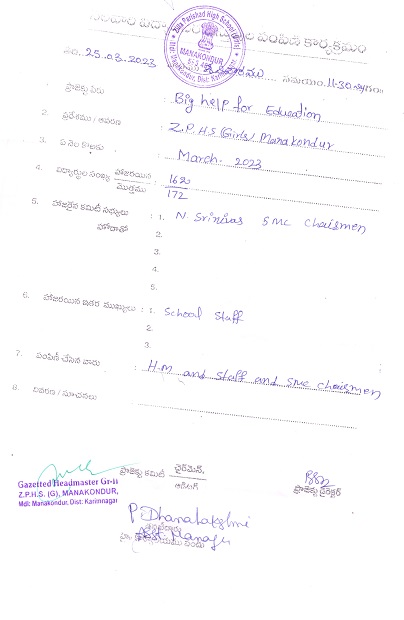 పంపిణీ కార్యక్రమం
Zilla Parishad High School (Girls)
MANAKONDUR
తేది. 25.03.2023 సమయం. 11-30
1. ప్రాజెక్టు పేరు : Big help for Education
2. ప్రదేశము / ఆవరణ : Z.P.H.S (Girls) Manakondur
3. ఏ నెల కొఱకు : March. 2023
4. విద్యార్థుల సంఖ్య హాజరయిన / మొత్తము : 162 / 172
5. హాజరైన కమిటీ సభ్యులు : 1. N Srinivas SMC Chairmen
హోదాతో 2.
3.
4.
5.
6. హాజరయిన ఇతర ముఖ్యులు : 1. School Staff
2.
3.
7. పంపిణీ చేసిన వారు : H.M and Staff and SMC Chairmen
8. వివరణ / సూచనలు :
Gazetted Headmaster Gr-II
Z.P.H.S. (G), MANAKONDUR,
Mdl: Manakondur. Dist: Karimnagar
ప్రాజెక్టు కమిటీ చైర్‌మెన్,
ప్రాజెక్టు డైరెక్టర్
P Dhanalakshmi
Asst Manager